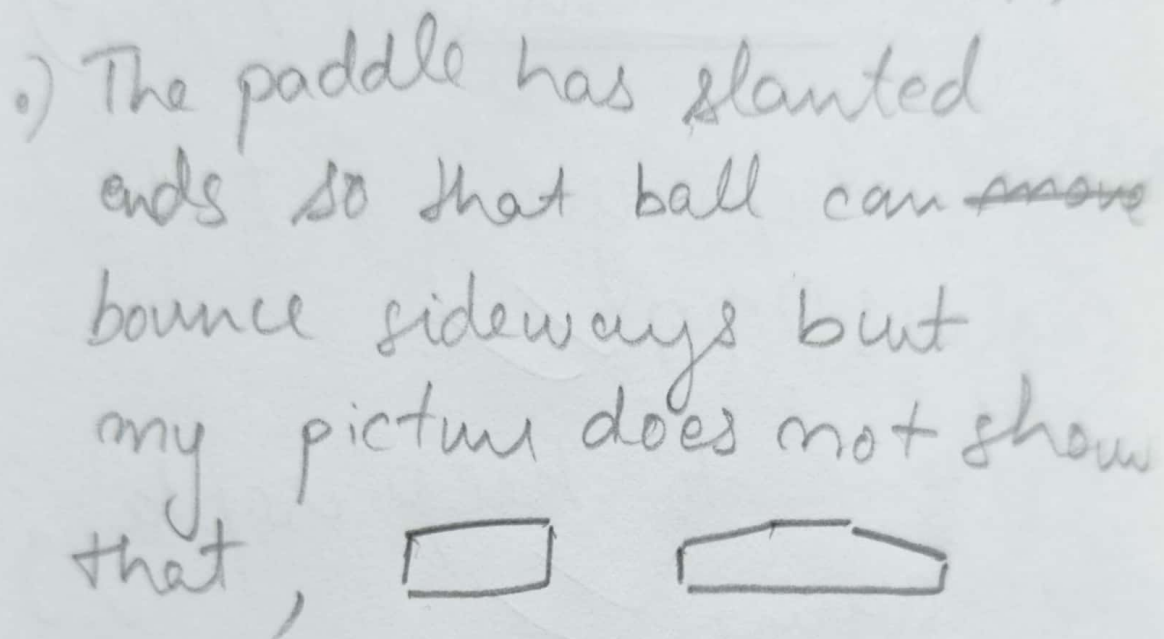 •) The paddle has slanted
ends so that ball can move
bounce sideways but
my picture does not show
that,